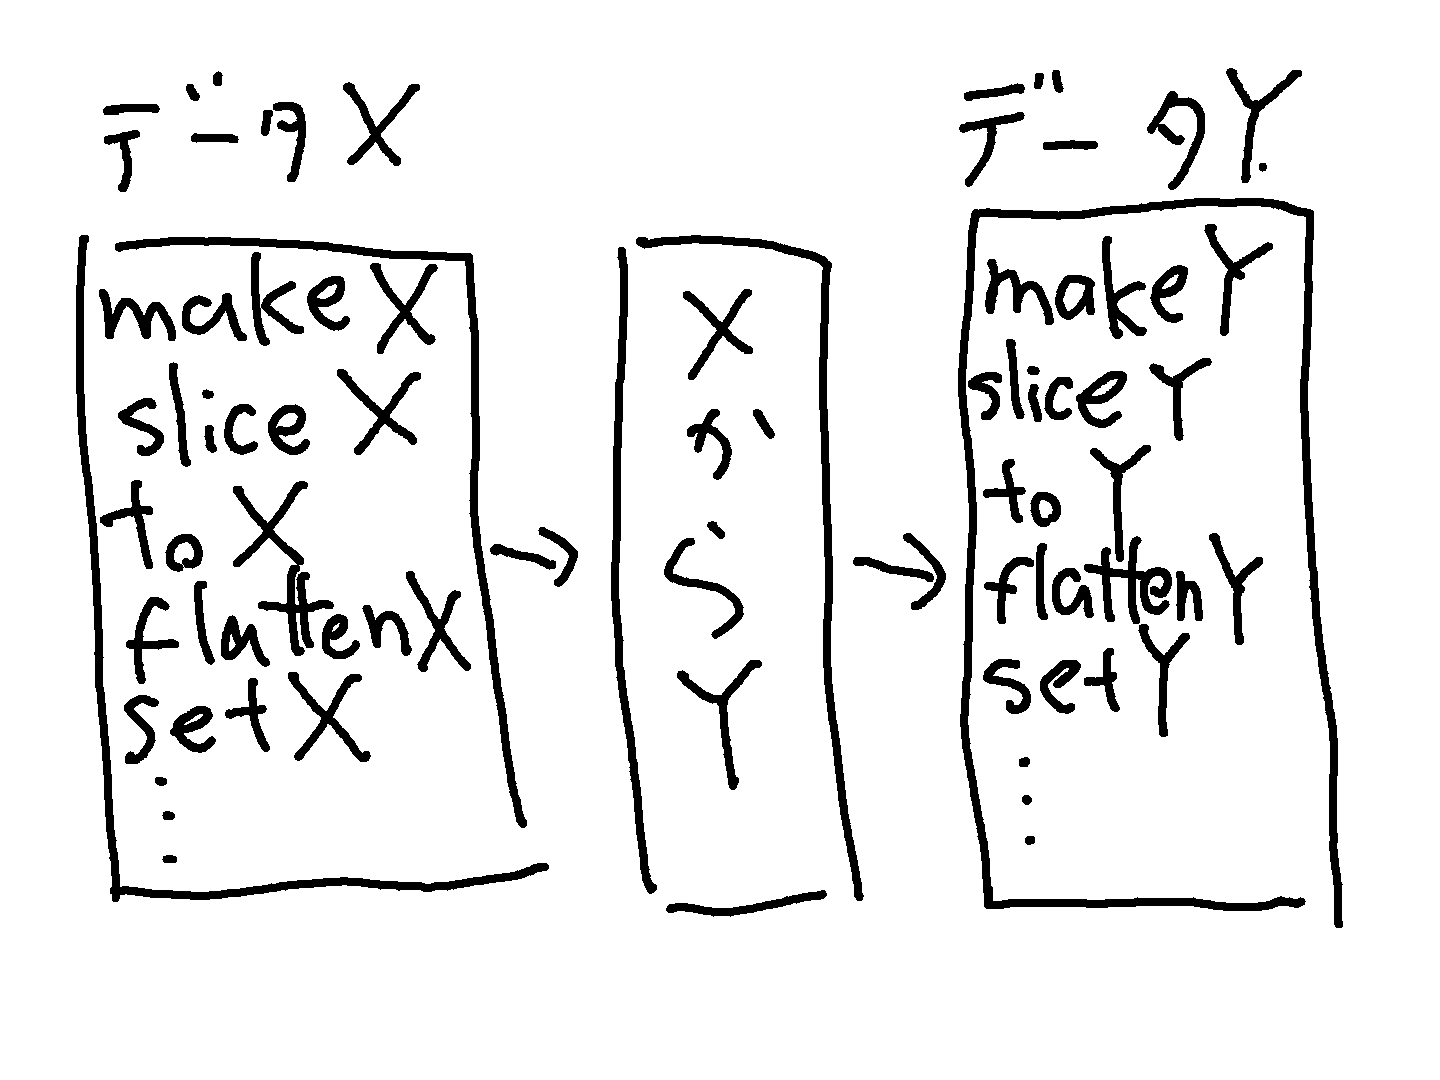 データX
makeX
sliceX
toX
flattenX
setX
⋮
X
が
ら
Y
データY
makeY
sliceY
toY
flattenY
setY
⋮